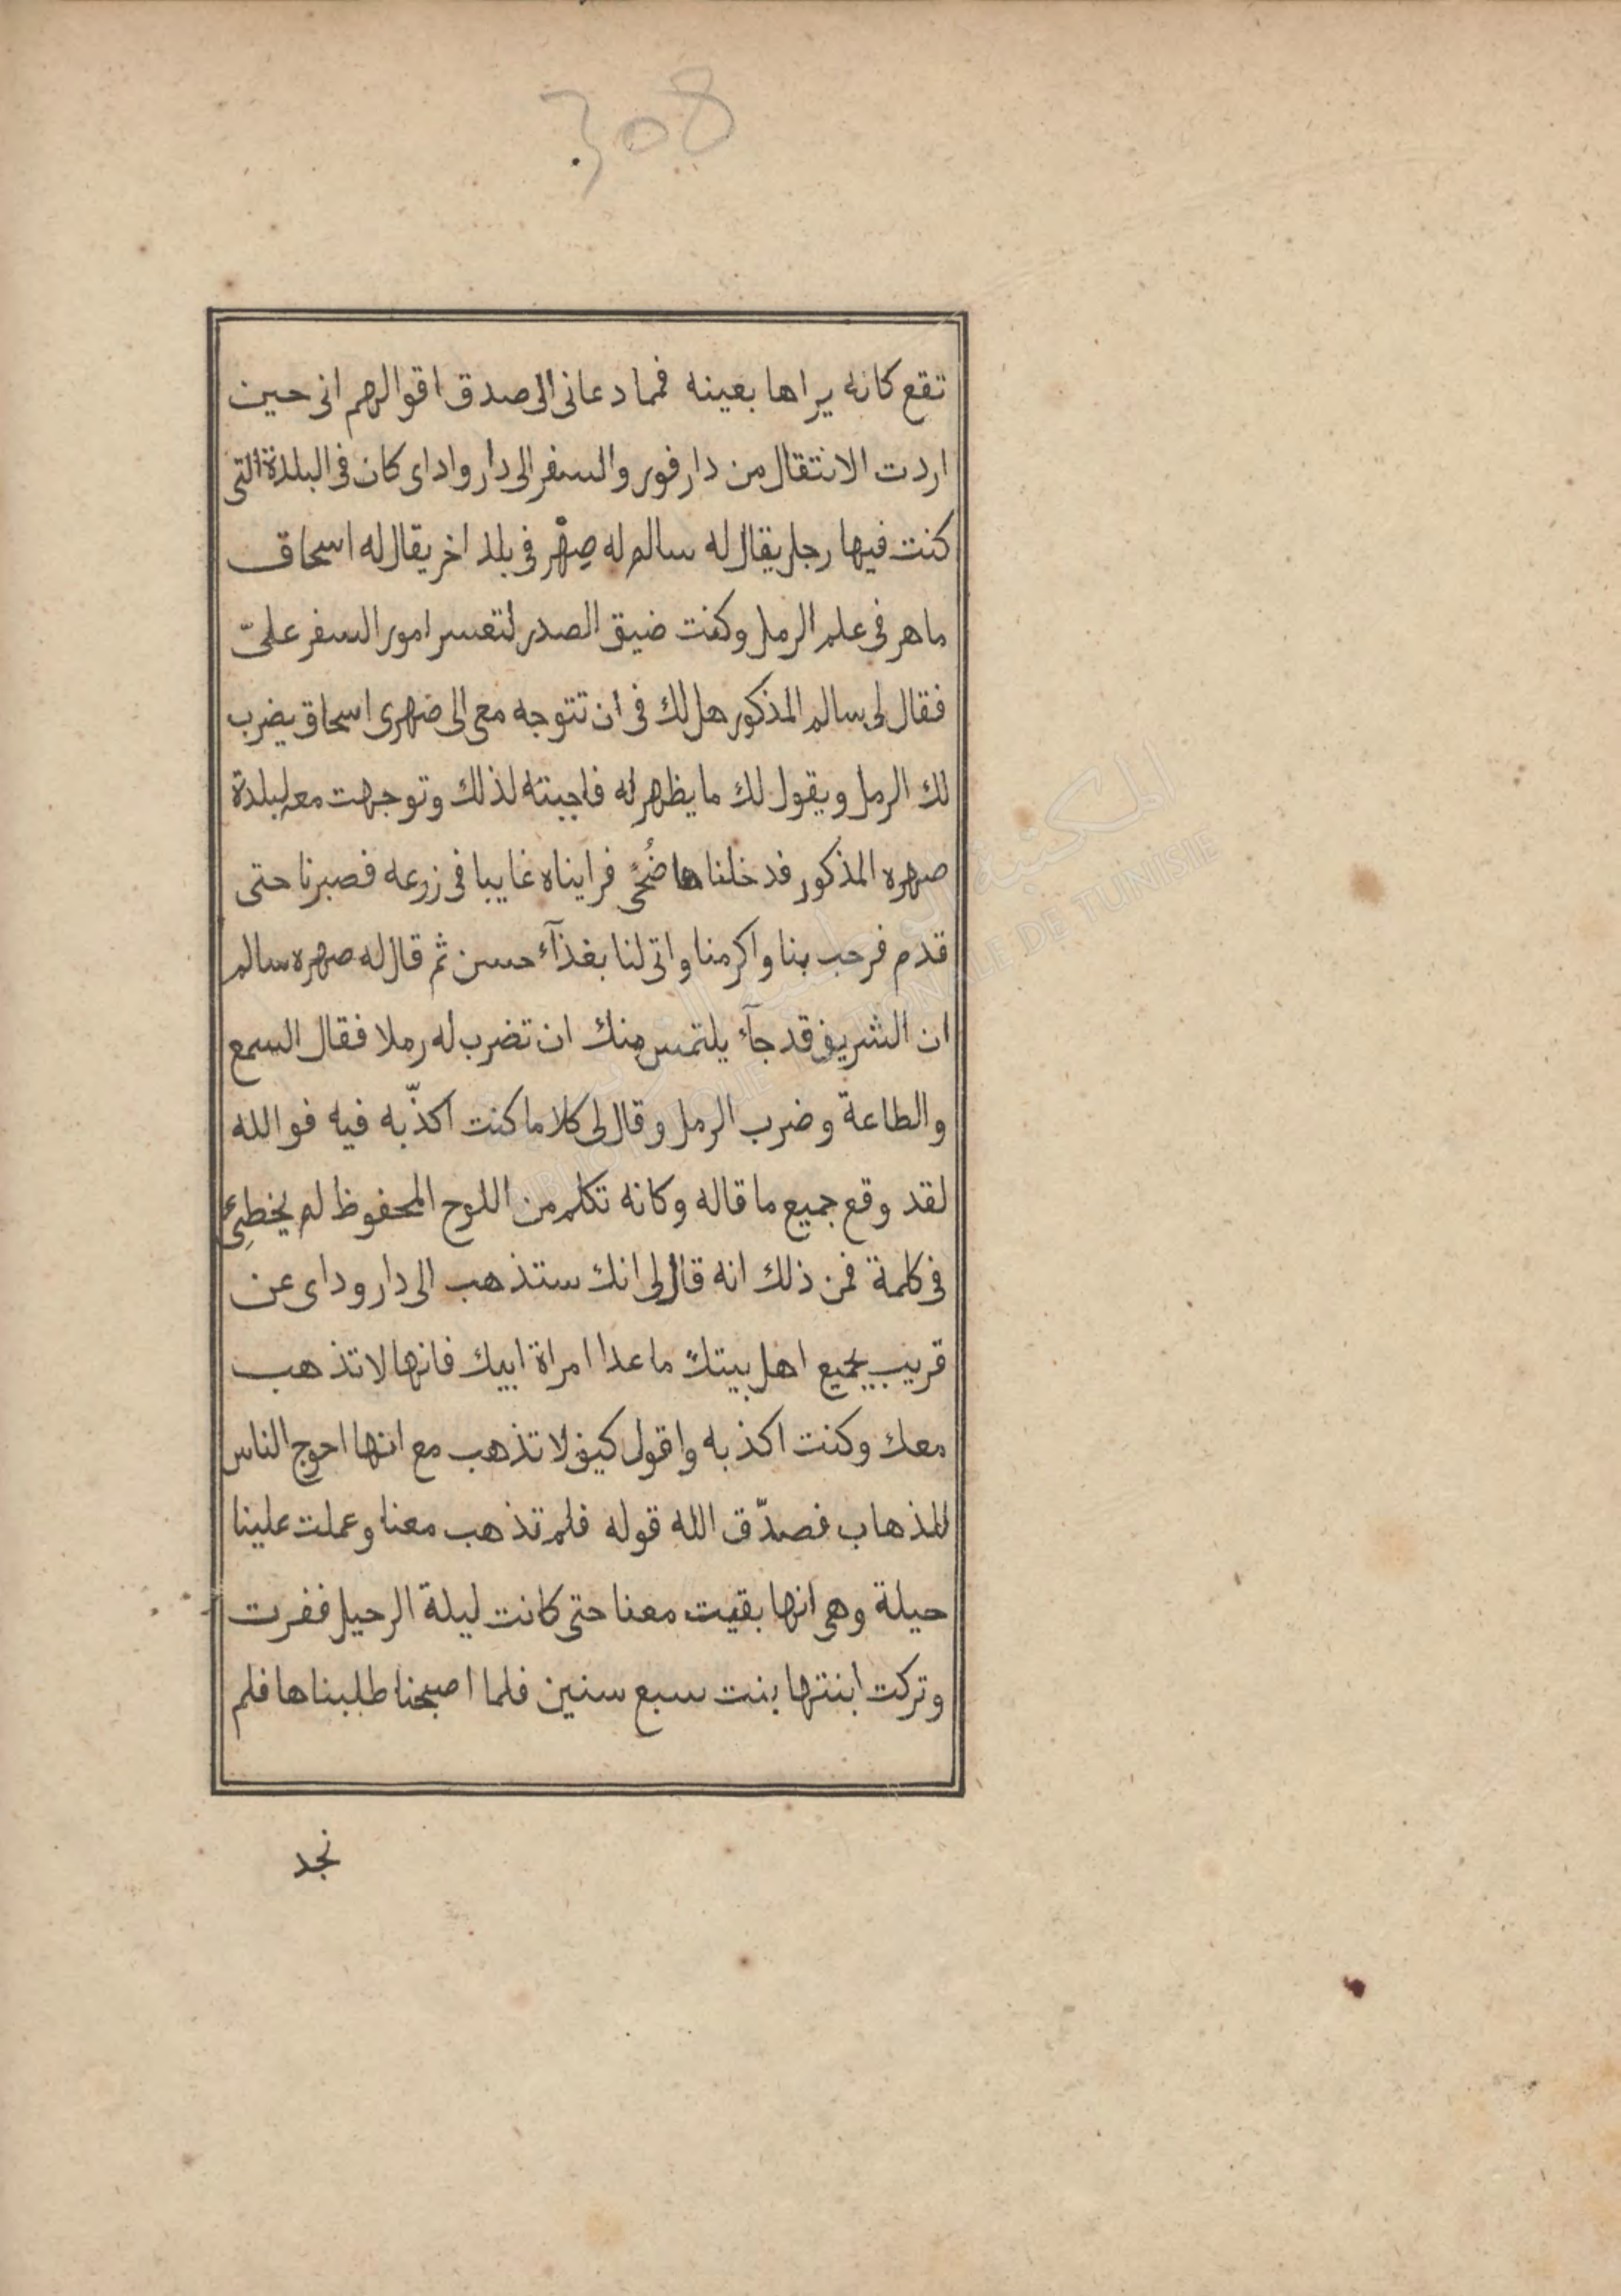 308
تقع كانه يراها بعينه فمما دعانى الى صدق اقوالهم انى حين
اردت الانتقال من دارفور والسفر الى دار واداى كان فى البلدة التى
كنت فيها رجل يقال له سالم له صِهْر فى بلد اخر يقال له اسحاق
ماهر فى علم الرمل وكنت ضيق الصدر لتعسر امور السفر علىّ
فقال لى سالم المذكور هل لك فى ان تتوجه معى الى صهرى اسحاق يضرب
لك الرمل ويقول لك ما يظهر له فاجبته لذلك وتوجهت معه لبلدة
صهره المذكور فدخلناها ضُحًى فرايناه غايبا فى زرعه فصبرنا حتى
قدم فرحب بنا واكرمنا واتى لنا بغذآء حسن ثم قال له صهره سالم
ان الشريف قد جآء يلتمس منك ان تضرب له رملا فقال السمع
والطاعة وضرب الرمل وقال لى كلاما كنت اكذّبه فيه فوالله
لقد وقع جميع ما قاله وكانه تكلم من اللوح المحفوظ لم يخطِئ
فى كلمة فمن ذلك انه قال لى انك ستذهب الى دار وداى عن
قريب بجميع اهل بيتك ما عدا امراة ابيك فانها لا تذهب
معك وكنت اكذبه واقول كيف لا تذهب مع انها احوج الناس
للذهاب فصدّق الله قوله فلم تذهب معنا وعملت علينا
حيلة وهى انها بقيت معنا حتى كانت ليلة الرحيل ففرت
وتركت ابنتها بنت سبع سنين فلما اصبحنا طلبناها فلم
نجد
المكتبة الوطنية التونسية
BIBLIOTHEQUE NATIONALE DE TUNISIE